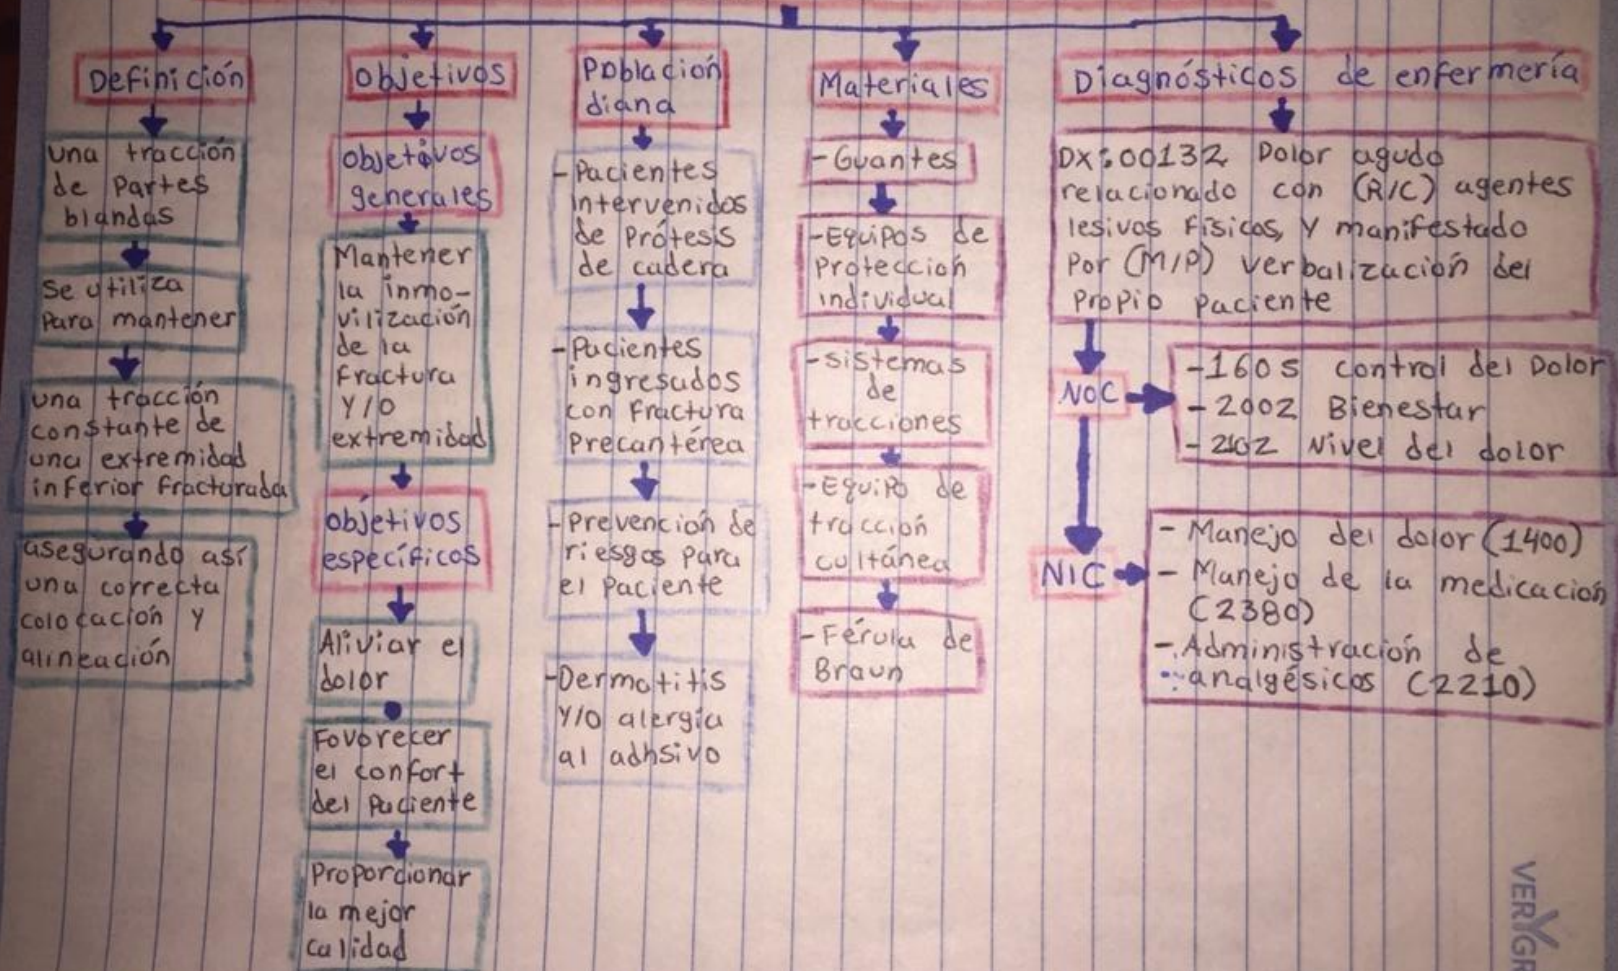 Definición
una tracción
de Partes
blandas
Se utiliza
Para mantener
una tracción
constante de
una extremidad
inferior fracturada
asegurando así
una correcta
colocación y
alineación
objetivos
objetivos
generales
Mantener
la inmo-
vilización
de la
fractura
Y/O
extremidad
objétivos
específicos
Aliviar el
dolor
Favorecer
el confort
del Paciente
Proporcionar
la mejor
calidad
Población
diana
-Pacientes
intervenidos
de Prótesis
de cadera
-Pacientes
ingresados
con fractura
Precantérea
-Prevención de
riesgos para
el Paciente
-Dermatitis
Y/O alergia
al adhsivo
Materiales
-Guantes
-Equipos de
Protección
individual
-sistemas
de
tracciones
-Equipo de
tracción
cultánea
-Férula de
Braun
Diagnósticos de enfermería
DX:00132 Dolor agudo
relacionado con (R/C) agentes
lesivos Físicos, Y manifestado
Por (M/P) verbalización del
Propio Paciente
NOC
-1605 control del Dolor
-2002 Bienestar
-2102 Nivel del dolor
NIC
- Manejo del dolor (1400)
- Manejo de la medicación
(2380)
- Administración de
analgésicos (2210)
VERYGR